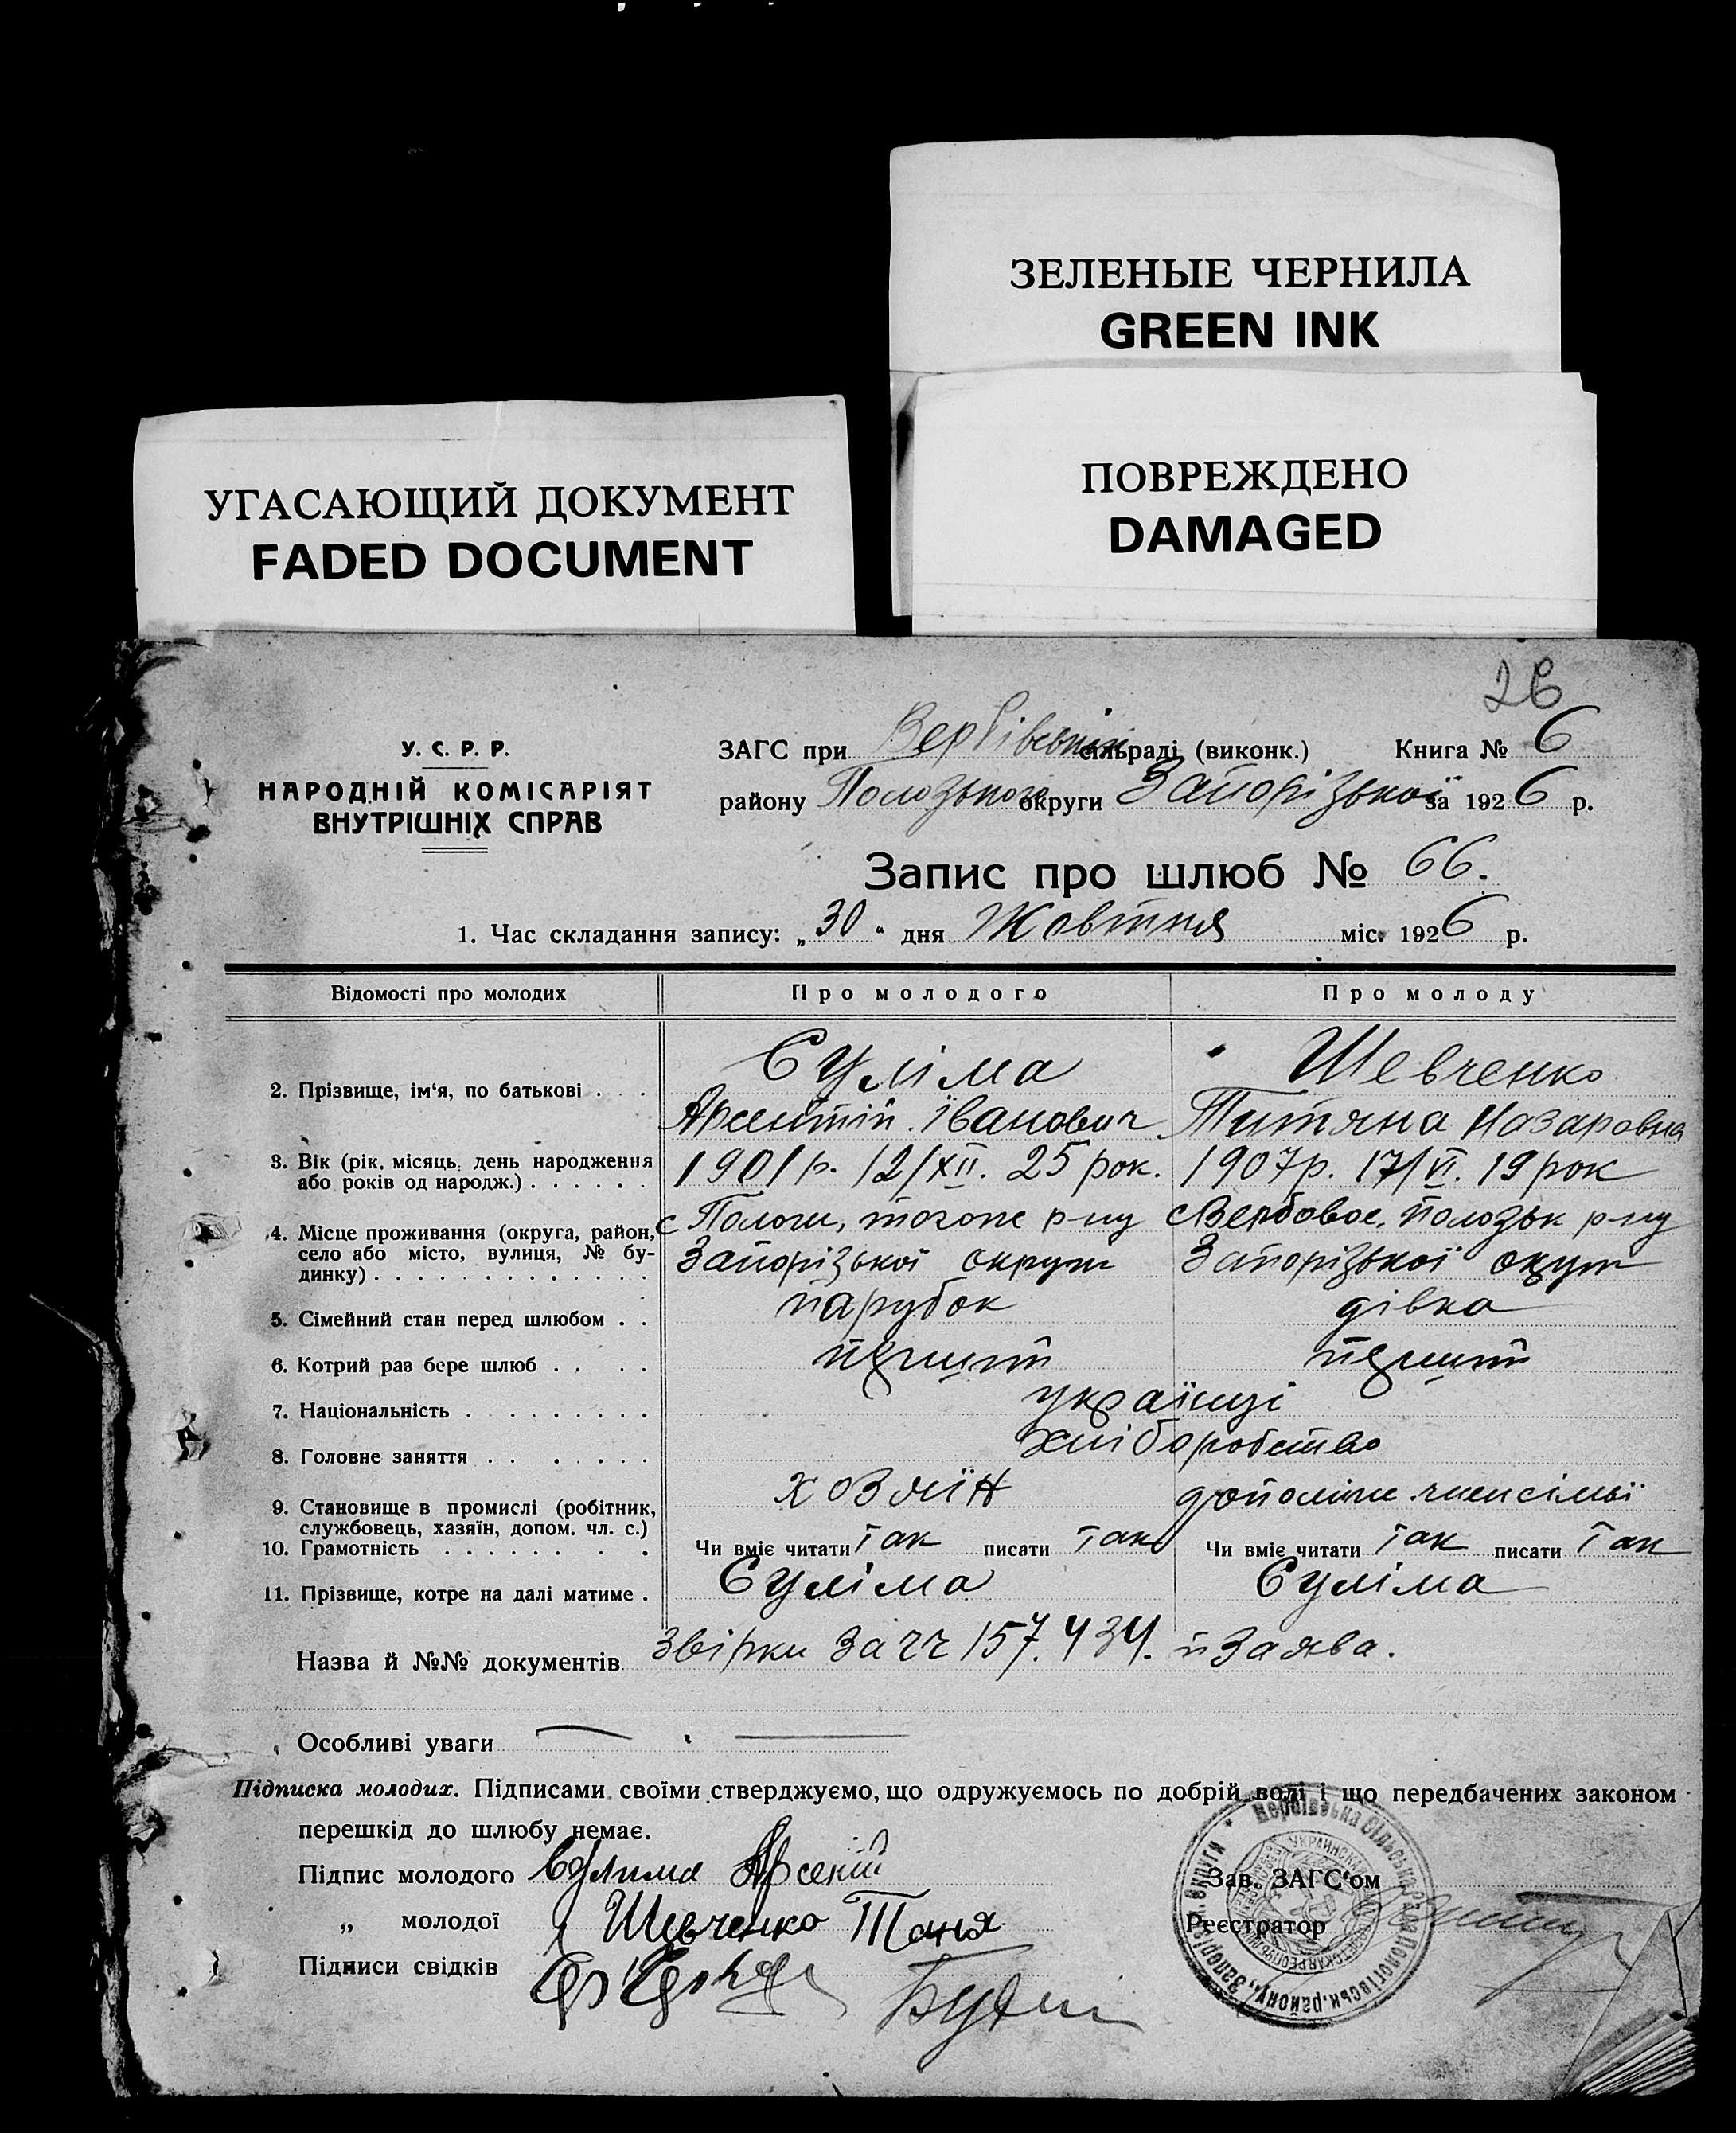 ЗЕЛЕНЫЕ ЧЕРНИЛА
GREEN INK
УГАСАЮЩИЙ ДОКУМЕНТ
FADED DOCUMENT
ПОВРЕЖДЕНО
DAMAGED
26
У. С. Р. Р.
НАРОДНІЙ КОМІСАРІЯТ
ВНУТРІШНІХ СПРАВ
ЗАГС при Вербівській сільраді (виконк.) Книга № 6
району Полозького округи Запорізької за 1926 р.
Запис про шлюб № 66.
1. Час складання запису: „30“ дня Жовтня міс. 1926 р.
Відомості про молодих Про молодого Про молоду
2. Прізвище, ім‘я, по батькові . . . Суліма Шевченко
Арсентій Іванович Титяна Назаровна
3. Вік (рік, місяць, день народження 1901 р. 12/XII. 25 рок. 1907 р. 17/VI. 19 рок
або років од народж.) . . . . . .
4. Місце проживання (округа, район, с Пологи, тогоже р-ну с Вербовое, Полозьк р-ну
село або місто, вулиця, № бу- Запорізької округи Запорізької округи
динку) . . . . . . . . . . . . .
5. Сімейний стан перед шлюбом . . парубок дівка
6. Котрий раз бере шлюб . . . . перший перший
7. Національність . . . . . . . . українці
8. Головне заняття . . . . . . . хліборобство
9. Становище в промислі (робітник, хозяїн допоміж. член сімьї
службовець, хазяїн, допом. чл. с.)
10. Грамотність . . . . . . . . . Чи вміє читати так писати так Чи вміє читати так писати так
11. Прізвище, котре на далі матиме . Суліма Суліма
Назва й №№ документів звірки за чч 157. 434. й заява.
Особливі уваги
Підписка молодих. Підписами своїми стверджуємо, що одружуємось по добрій волі і що передбачених законом
перешкід до шлюбу немає.
Підпис молодого Сулима Арсеній
„ молодої Шевченко Таня
Підписи свідків
Зав. ЗАГС‘ом
Реєстратор
Вербівська Сільська Рада Пологівськ. району, Запорізьк. округи